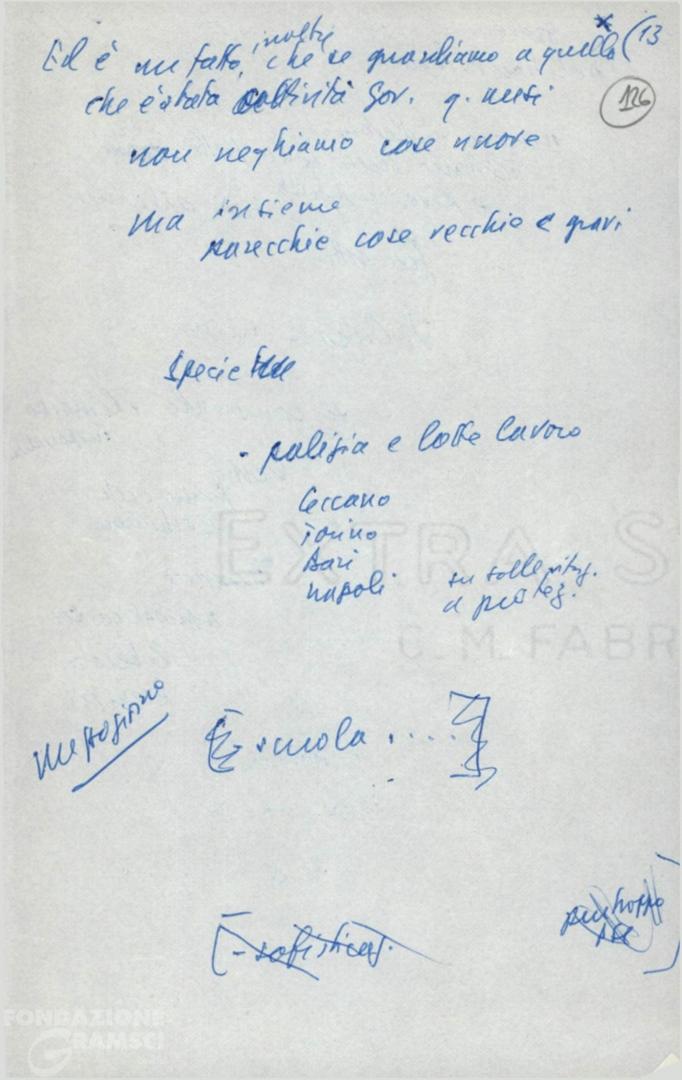 inoltre
Ed è un fatto, che se guardiamo a quello (13
126
che è stata attività Gov. q. mesi
non neghiamo cose nuove
ma insieme
parecchie cose vecchie e gravi
specie
- polizia e lotte lavoro
Ceccano
Torino
Bari
Napoli
su sollecitaz.
a protez.
scuola ....
[- sofisticaz.
purtroppo
EXTRA S
C. M. FABR
FONDAZIONE
GRAMSCI